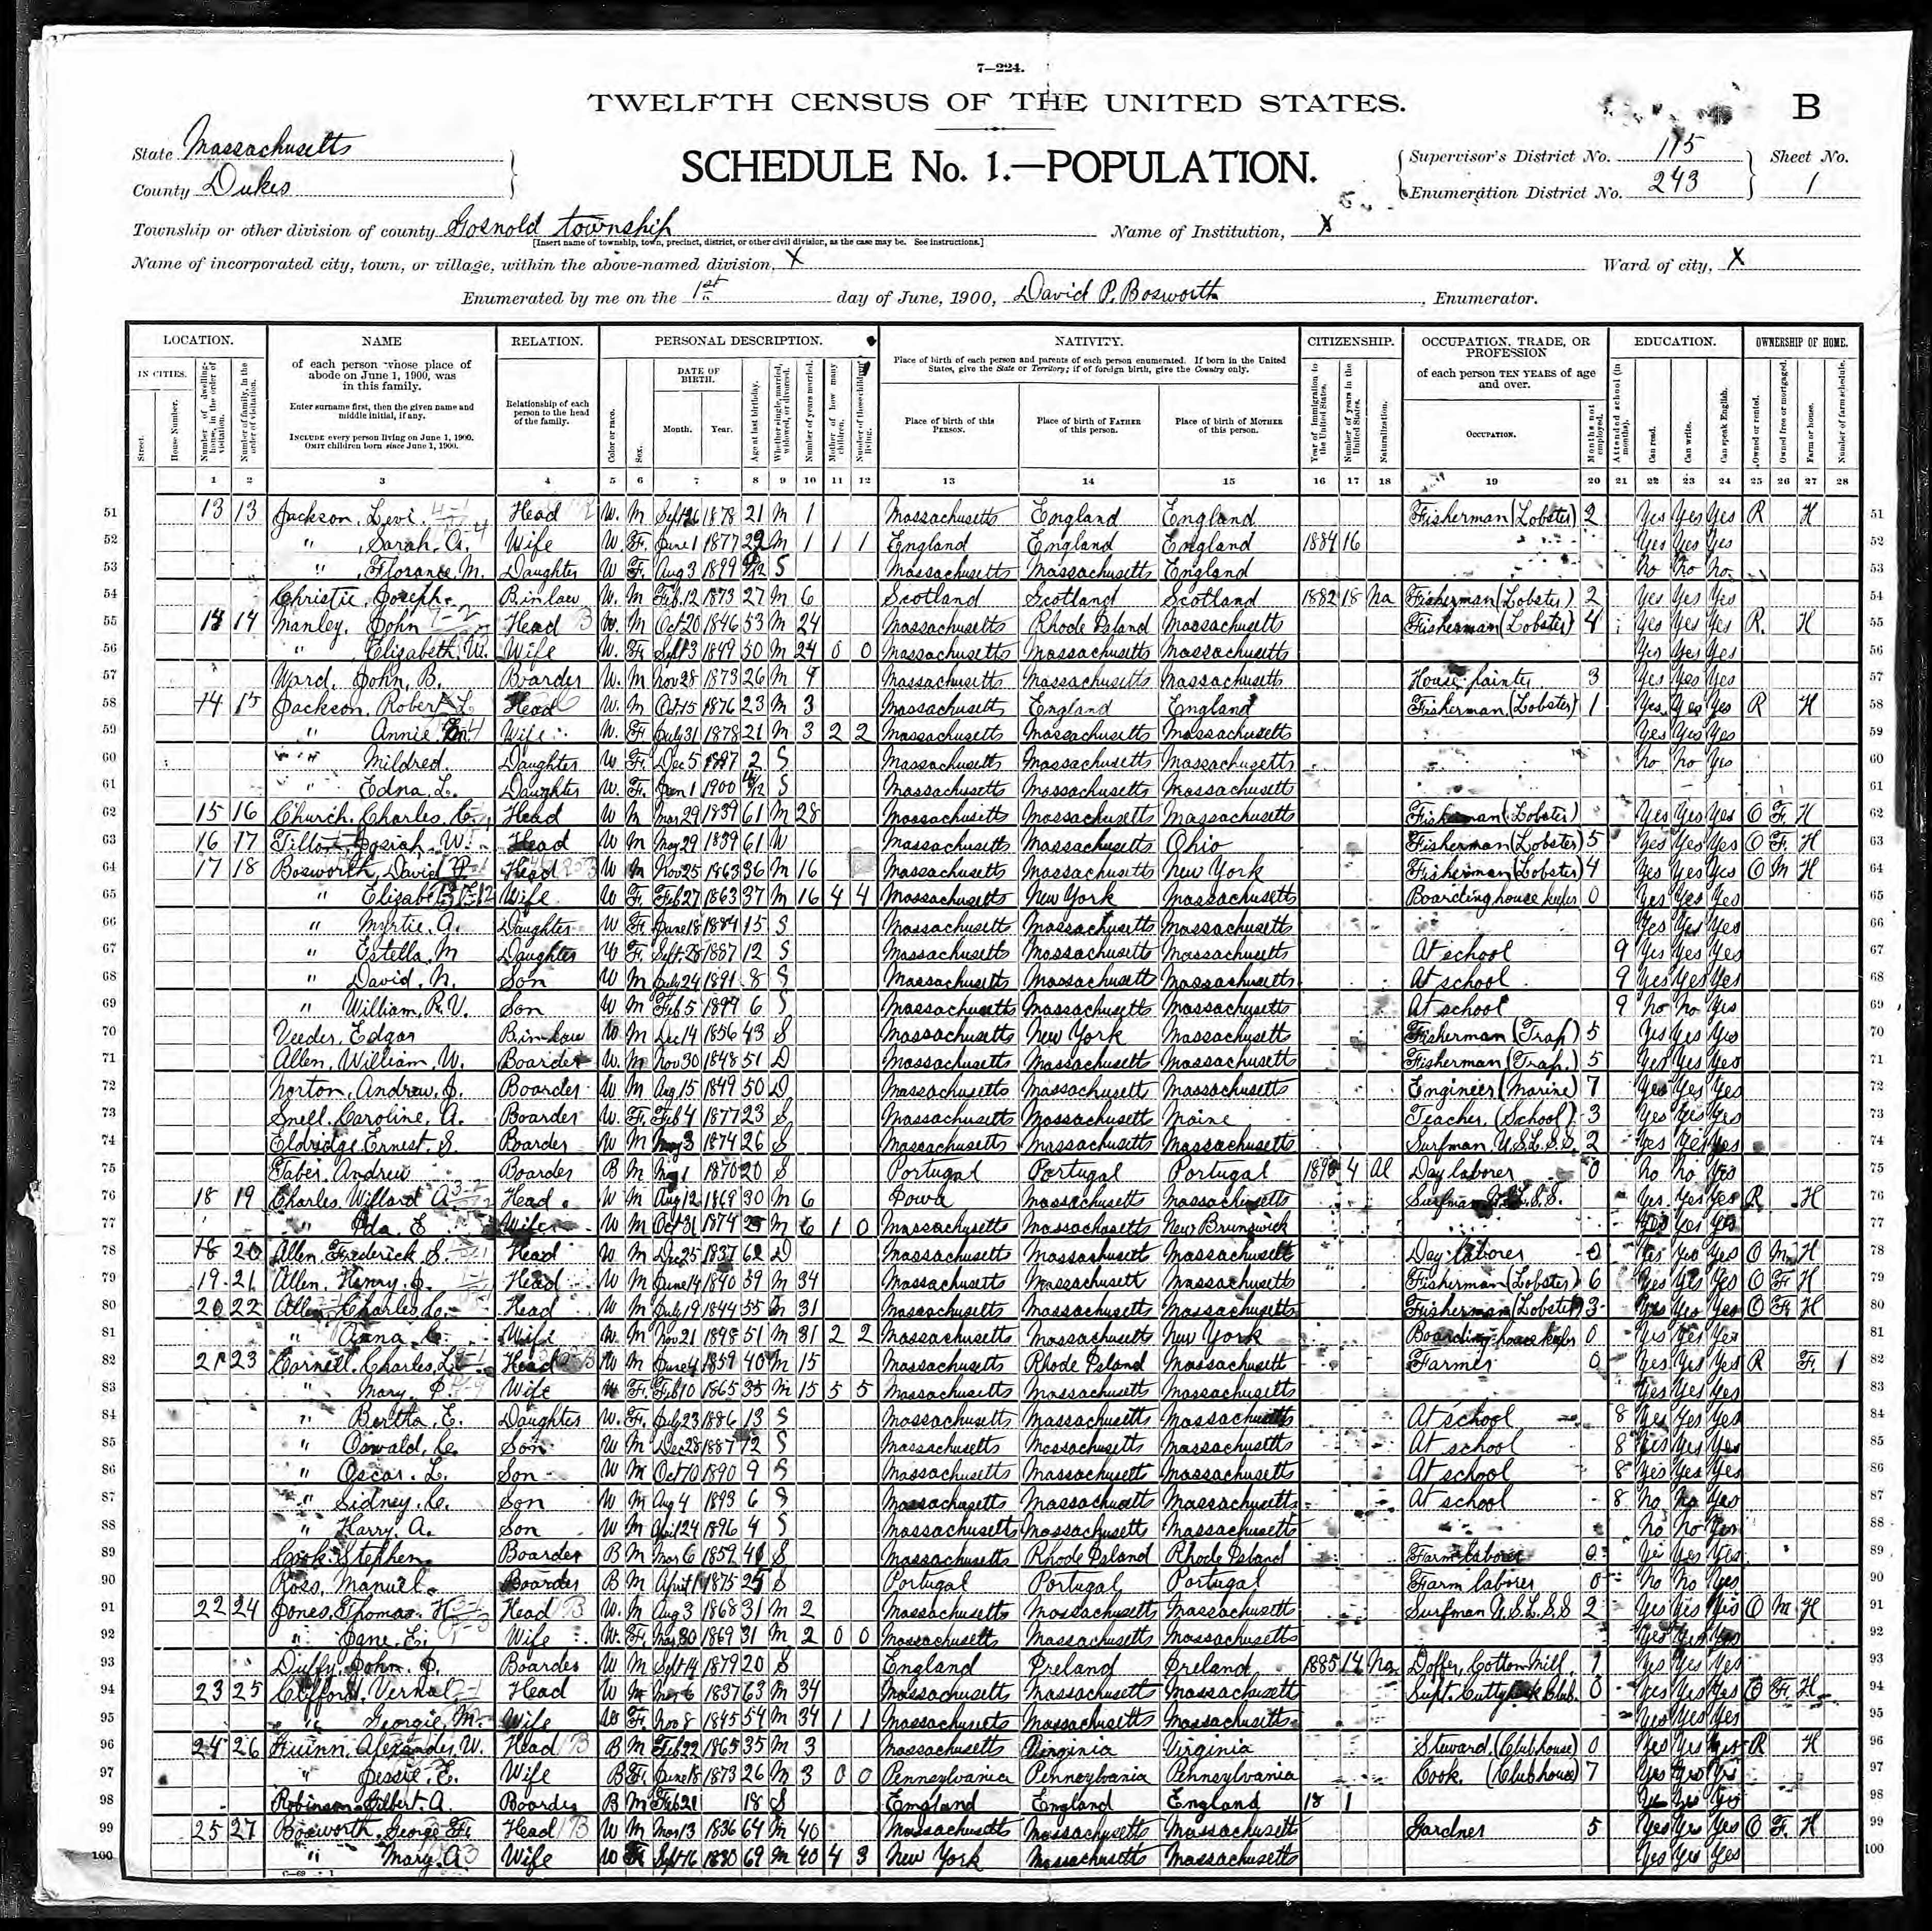 7—224.
TWELFTH CENSUS OF THE UNITED STATES.
B
State Massachusetts
County Dukes
SCHEDULE No. 1.—POPULATION.
Supervisor's District No. 115
Enumeration District No. 243
Sheet No. 1
Township or other division of county Gosnold township
[Insert name of township, town, precinct, district, or other civil division, as the case may be. See instructions.]
Name of Institution, X
Name of incorporated city, town, or village, within the above-named division, X
Ward of city, X
Enumerated by me on the 1st day of June, 1900, David P. Bosworth, Enumerator.
LOCATION. NAME RELATION. PERSONAL DESCRIPTION. NATIVITY. CITIZENSHIP. OCCUPATION, TRADE, OR PROFESSION EDUCATION. OWNERSHIP OF HOME.
IN CITIES. Street. House Number. Number of dwelling-house, in the order of visitation. Number of family, in the order of visitation.
of each person whose place of abode on June 1, 1900, was in this family.
Enter surname first, then the given name and middle initial, if any.
INCLUDE every person living on June 1, 1900. OMIT children born since June 1, 1900.
Relationship of each person to the head of the family.
Color or race. Sex. DATE OF BIRTH. Month. Year. Age at last birthday. Whether single, married, widowed, or divorced. Number of years married. Mother of how many children. Number of these children living.
Place of birth of each person and parents of each person enumerated. If born in the United States, give the State or Territory; if of foreign birth, give the Country only.
Place of birth of this PERSON. Place of birth of FATHER of this person. Place of birth of MOTHER of this person.
Year of immigration to the United States. Number of years in the United States. Naturalization.
of each person TEN YEARS of age and over.
OCCUPATION. Months not employed.
Attended school (in months). Can read. Can write. Can speak English.
Owned or rented. Owned free or mortgaged. Farm or house. Number of farm schedule.
1 2 3 4 5 6 7 8 9 10 11 12 13 14 15 16 17 18 19 20 21 22 23 24 25 26 27 28
51 13 13 Jackson, Levi. Head W. M Sept 26 1878 21 M 1 Massachusetts England England Fisherman (Lobster) 2 Yes Yes Yes R H 51
52 " , Sarah, A. Wife W. F. June 1 1877 22 M 1 1 1 England England England 1884 16 Yes Yes Yes 52
53 " , Florance, M. Daughter W F. Aug 3 1899 S Massachusetts Massachusetts England No No No 53
54 Christie, Joseph. B in law W. M Feb. 12 1873 27 M 6 Scotland Scotland Scotland 1882 18 Na Fisherman (Lobster) 2 Yes Yes Yes 54
55 14 Manley, John Head W. M Oct 20 1846 53 M 24 Massachusetts Rhode Island Massachusetts Fisherman (Lobster) 4 Yes Yes Yes R. H 55
56 " Elizabeth, W. Wife W. F. Sept 3 1849 50 M 24 0 0 Massachusetts Massachusetts Massachusetts Yes Yes Yes 56
57 Ward, John, B. Boarder W. M Nov 28 1873 26 M Massachusetts Massachusetts Massachusetts House painter 3 Yes Yes Yes 57
58 14 15 Jackson, Robert L. Head W. M Oct 15 1876 23 M 3 Massachusetts England England Fisherman (Lobster) 1 Yes Yes Yes R H 58
59 " Annie Wife W. F July 31 1878 21 M 3 2 2 Massachusetts Massachusetts Massachusetts Yes Yes Yes 59
60 " Mildred. Daughter W F. Dec 5 1897 2 S Massachusetts Massachusetts Massachusetts No No Yes 60
61 " Edna, L. Daughter W. F. Jan 1 1900 S Massachusetts Massachusetts Massachusetts 61
62 15 16 Church, Charles, C. Head W M Mar 29 1839 61 M 28 Massachusetts Massachusetts Massachusetts Fisherman (Lobster) Yes Yes Yes O F. H 62
63 16 17 Tilton, Josiah, W. Head W M May 29 1839 61 W Massachusetts Massachusetts Ohio Fisherman (Lobster) 5 Yes Yes Yes O F. H 63
64 17 18 Bosworth, David P. Head W M Nov 25 1863 36 M 16 Massachusetts Massachusetts New York Fisherman (Lobster) 4 Yes Yes Yes O M H 64
65 " Elizabeth Wife W F. Feb 27 1863 37 M 16 4 4 Massachusetts New York Massachusetts Boarding house keeper 0 Yes Yes Yes 65
66 " Myrtie, A. Daughter W F. June 18 1884 15 S Massachusetts Massachusetts Massachusetts Yes Yes Yes 66
67 " Estella, M Daughter W F. Sept. 28 1887 12 S Massachusetts Massachusetts Massachusetts At school 9 Yes Yes Yes 67
68 " David, N. Son W M July 24 1891 8 S Massachusetts Massachusetts Massachusetts At school 9 Yes Yes Yes 68
69 " William, R. V. Son W M Feb 5 1894 6 S Massachusetts Massachusetts Massachusetts At school 9 No No Yes 69
70 Veeder, Edgar B in law W M Dec 14 1856 43 S Massachusetts New York Massachusetts Fisherman (Trap) 5 Yes Yes Yes 70
71 Allen, William, W. Boarder W. M Nov 30 1848 51 D Massachusetts Massachusetts Massachusetts Fisherman (Trap.) 5 Yes Yes Yes 71
72 Norton, Andrew, J. Boarder W M Aug 15 1849 50 D Massachusetts Massachusett Massachusetts Engineer (Marine) 7 Yes Yes Yes 72
73 Snell, Caroline, A. Boarder W. F. Feb 4 1877 23 S Massachusetts Massachusett Maine Teacher, (School) 3 Yes Yes Yes 73
74 Eldridge, Ernest, S. Boarder W M May 3 1874 26 S Massachusetts Massachusetts Massachusetts Surfman U.S.L.S.S. 2 Yes Yes Yes 74
75 Taber, Andrew Boarder B M May 1 1870 20 S Portugal Portugal Portugal 4 Al Day laborer 0 No No Yes 75
76 18 19 Charles, Willard A. Head W M Aug 12 1869 30 M 6 Iowa Massachusetts Massachusetts Surfman U.S.L.S.S. Yes Yes Yes R H 76
77 " Ida, E Wife W M Oct 31 1874 25 M 6 1 0 Massachusetts Massachusetts New Brunswick Yes Yes Yes 77
78 18 20 Allen, Frederick S. Head W M Dec 25 1837 62 D Massachusetts Massachusett Massachusett Day laborer 0 Yes Yes Yes O M H 78
79 19 21 Allen, Henry, J. Head W M June 14 1840 59 M 34 Massachusetts Massachusett Massachusetts Fisherman (Lobster) 6 Yes Yes Yes O F H 79
80 20 22 Allen, Charles C. Head W M July 19 1844 55 M 31 Massachusetts Massachusetts Massachusetts Fisherman (Lobster) 3 Yes Yes Yes O F. H 80
81 " Anna, C. Wife W. M Nov 21 1848 51 M 31 2 2 Massachusetts Massachusetts New York Boarding house keeper 0 Yes Yes Yes 81
82 21 23 Cornell, Charles, L. Head W M June 4 1859 40 M 15 Massachusetts Rhode Island Massachusett Farmer 0 Yes Yes Yes R F. 1 82
83 " Mary, P. Wife W F. Feb 10 1865 35 M 15 5 5 Massachusetts Massachusetts Massachusetts Yes Yes Yes 83
84 " Bertha, E. Daughter W. F. July 23 1886 13 S Massachusetts Massachusetts Massachusetts At school 8 Yes Yes Yes 84
85 " Oswald, C. Son W M Dec 28 1887 12 S Massachusetts Massachusetts Massachusetts At school 8 Yes Yes Yes 85
86 " Oscar, L. Son W M Oct 10 1890 9 S Massachusetts Massachusetts Massachusetts At school 8 Yes Yes Yes 86
87 " Sidney, C. Son W M Aug 4 1893 6 S Massachusetts Massachusetts Massachusetts At school 8 No No Yes 87
88 " Harry, A. Son W M April 24 1896 4 S Massachusetts Massachusetts Massachusetts No No Yes 88
89 Cook, Stephen Boarder B M Mar 6 1859 S Massachusetts Rhode Island Rhode Island Farm laborer 0 Yes Yes Yes 89
90 Ross, Manuel Boarder B M April 1 1875 25 S Portugal Portugal Portugal Farm laborer 0 No No Yes 90
91 22 24 Jones, Thomas, H Head W. M Aug 3 1868 31 M 2 Massachusetts Massachusetts Massachusetts Surfman U.S.L.S.S 2 Yes Yes Yes O M H 91
92 " Jane, E. Wife W. F. Mar 30 1869 31 M 2 0 0 Massachusetts Massachusetts Massachusetts Yes Yes Yes 92
93 Duffy, John, J. Boarder W M Sept 14 1879 20 S England Ireland Ireland 1885 14 Na Doffer, Cotton Mill. 1 Yes Yes Yes 93
94 23 25 Clifford, Vernal Head W M Mar 6 1837 63 M 34 Massachusetts Massachusetts Massachusett Supt. Cuttyhunk Club. 0 Yes Yes Yes O F. H 94
95 " Georgie, M. Wife W F. Nov 8 1845 54 M 34 1 1 Massachusetts Massachusetts Massachusetts Yes Yes Yes 95
96 24 26 Alexander, W. Head B M Feb 22 1865 35 M 3 Massachusetts Virginia Virginia Steward, (Clubhouse) 0 Yes Yes Yes R H 96
97 " Jessie, E. Wife B F. June 18 1873 26 M 3 0 0 Pennsylvania Pennsylvania Pennsylvania Cook. (Clubhouse) 7 Yes Yes Yes 97
98 Robinson, Gilbert, A. Boarder B M Feb 21 18 S England England England 18 1 Yes Yes Yes 98
99 25 27 Bosworth, George, F. Head W M Mar 13 1836 64 M 40 Massachusetts Massachusetts Massachusett Gardner 5 Yes Yes Yes O F. H 99
100 " Mary, A. Wife W F Sept 16 1830 69 M 40 4 3 New York Massachusetts Massachusetts Yes Yes Yes 100